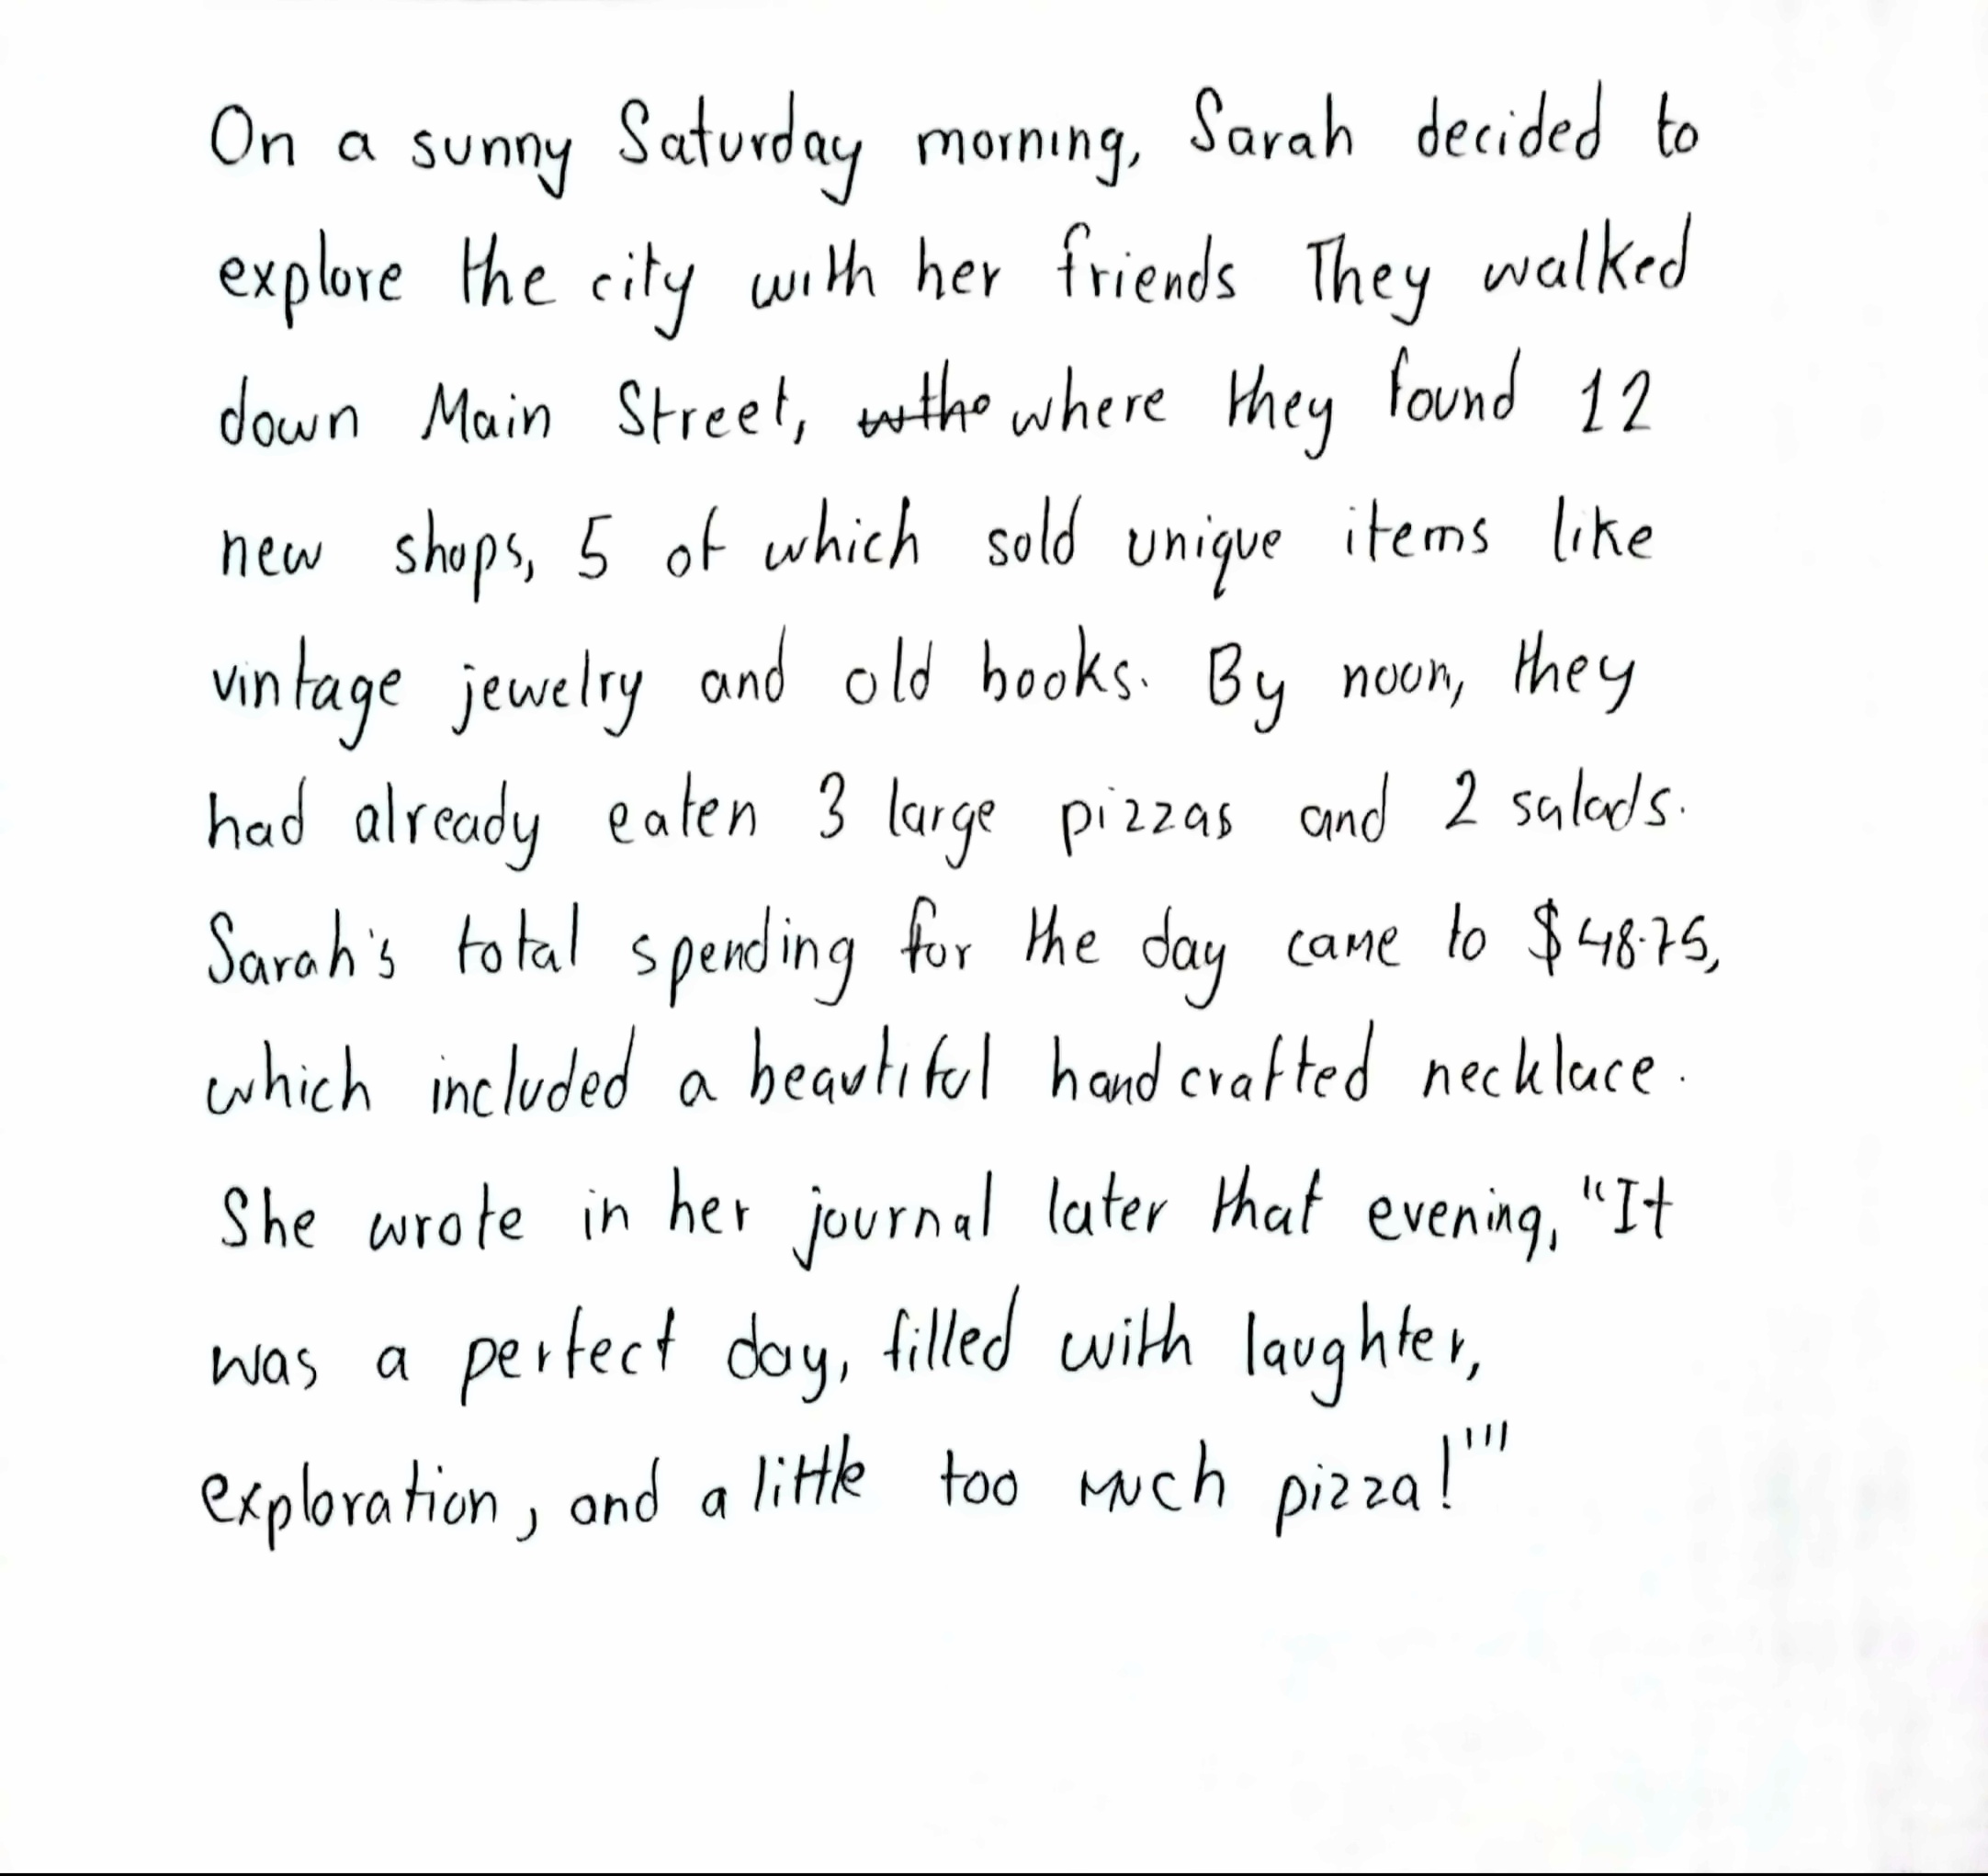 On a sunny Saturday morning, Sarah decided to
explore the city with her friends They walked
down Main Street, where they found 12
new shops, 5 of which sold unique items like
vintage jewelry and old books. By noon, they
had already eaten 3 large pizzas and 2 salads.
Sarah's total spending for the day came to $48.75,
which included a beautiful handcrafted necklace.
She wrote in her journal later that evening, "It
was a perfect day, filled with laughter,
exploration, and a little too much pizza!'"